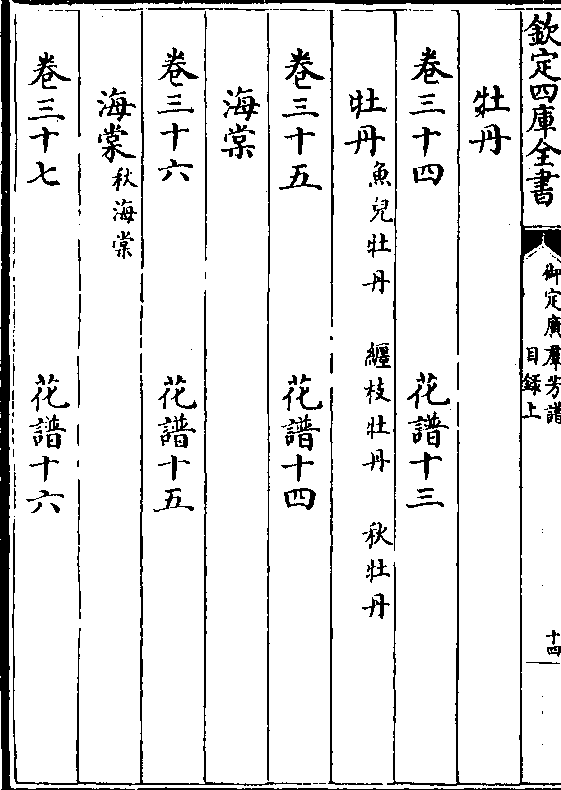 欽定四庫全書
御定廣羣芳譜
目録上
十四
牡丹
卷三十四 花譜十三
牡丹魚兒牡丹 纏枝牡丹 秋牡丹
卷三十五 花譜十四
海棠
卷三十六 花譜十五
海棠秋海棠
卷三十七 花譜十六